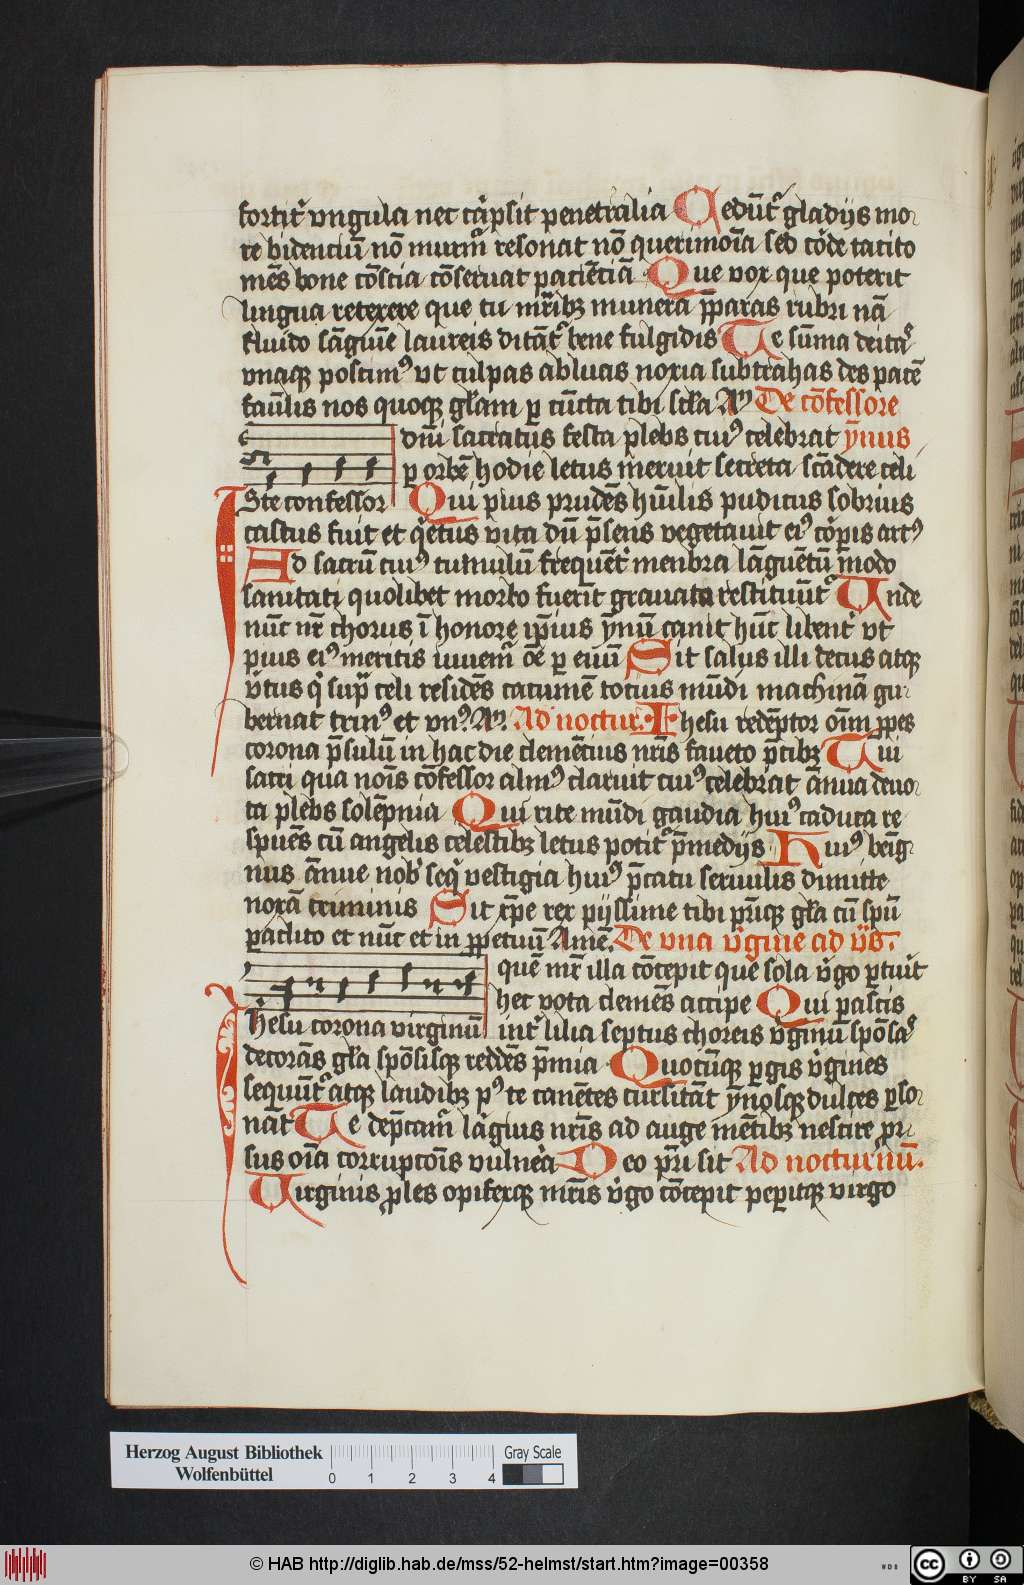 fortit᷑ vngula nec cᷓpsit penetralia Cedūt᷑ gladijs mo-
re bidentiū nō murm̄ resonat nō querimōia sed corde tacito
mēs bone cōscia cōseruat paciētiā Que vox que poterit
lingua retexere que tu mr̄ibꝫ munera p̄paras rubri nā
fluido sāguīe laureis ditāt᷑ bene fulgidis Te sūma deitaꝰ
vnaqꝫ poscimꝰ vt culpas abluas noxia subtrahas des pacē
famlis nos quoqꝫ glām ꝑ cūcta tibi scła Am̄ De cōfessore
dn̄i sacratus festa plebs cuiꝰ celebrat ẏmnus
ꝑ orbē hodie letus meruit secreta scādere celi
Iste confessor Qui pius prudēs hūilis pudicus sobrius
castus fuit et q̄etus vita dū p̄sens vegetauit eiꝰ corpis artꝰ
Ad sacrū cuiꝰ tumulū frequēt᷑ menbra lāguētū modo
sanitati quolibet morbo fuerit grauata restituūt᷑ Vnde
nūc nr̄ chorus ī honore ip̄ius ẏmnū canit hūc libent᷑ vt
pius eiꝰ meritis iuuem᷑ oē ꝑ euū Sit salus illi decus atqꝫ
v̄tus q̄ sup̄ celi residēs cacumē totius mūdi machinā gu-
bernat trinꝰ et vnꝰ Am̄ Ad noctur. Ihesu redēptor oīm ꝓpes
corona p̄sulū in hac die clemētius nr̄is faueto p̄cibꝫ Tui
sacri qua nōis cōfessor almꝰ claruit cuiꝰ celebrat ānua deuo-
ta plebs solēpnia Qui rite mūdi gaudia huiꝰ caduca re
spuēs cū angelis celestibꝫ letus potit᷑ p̄medijs Huiꝰ benīg-
nus ānue nob᷑ seq̄ vestigia huiꝰ p̄catu seruulis dimitte
noxā criminis Sit xp̄e rex pijssime tibi pr̄iqꝫ gła cū spū
paclito et nūc et in ꝑpetuū Amē. De vna v᷑gine ad v̄s.
quē mr̄ illa cōcepit que sola v᷑go ꝑtuit
hec vota clemēs accipe Qui pascis
Ihesu corona virginū int᷑ lilia septus choreis v᷑ginū spōsaꝰ
decorās gła spōsisqꝫ reddēs p̄mia Quocūqꝫ ꝑgis v᷑gines
sequūt᷑ atqꝫ laudibꝫ pꝰ te canētes cursitāt ẏmnosqꝫ dulces ꝑso-
nāt Te dep̄cam᷑ lāgius nr̄is ad auge mētibꝫ nescire pr̄-
sus oīa corrupcōis vulnera Deo pr̄i sit Ad nocturnū.
Virginis ꝓles opifexqꝫ mr̄is v᷑go cōcepit peperitqꝫ virgo
Herzog August Bibliothek
Wolfenbüttel
0 1 2 3 4
Gray Scale
© HAB http://diglib.hab.de/mss/52-helmst/start.htm?image=00358
WDB
cc BY SA